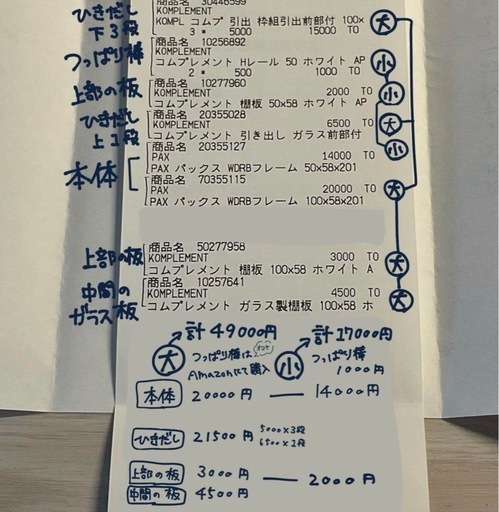 商品名 30446599
ひきだし KOMPLEMENT
下3段 KOMPL コムプ 引出 枠組引出前部付 100x 大
3 * 5000 15000 TO
商品名 10256892
つっぱり棒 KOMPLEMENT
コムプレメント Hレール 50 ホワイト AP 小
2 * 500 1000 TO
商品名 10277960
上部の板 KOMPLEMENT 2000 TO 小
コムプレメント 棚板 50x58 ホワイト AP
商品名 20355028
ひきだし KOMPLEMENT 6500 TO 大
上1段 コムプレメント 引き出し ガラス前部付
商品名 20355127 小
本体 PAX 14000 TO
PAX パックス WDRBフレーム 50x58x201
商品名 70355115
PAX 20000 TO 大
PAX パックス WDRBフレーム 100x58x201
商品名 50277958
上部の板 KOMPLEMENT 3000 TO 大
コムプレメント 棚板 100x58 ホワイト A
商品名 10257641
中間の KOMPLEMENT 4500 TO 大
ガラス板 コムプレメント ガラス製棚板 100x58 ホ
計49000円 計17000円
大 つっぱり棒は 小 つっぱり棒
Amazonにて購入 1000円
本体 20000円 — 14000円
ひきだし 21500円 5000×3段
6500×1段
上部の板 3000円 — 2000円
中間の板 4500円